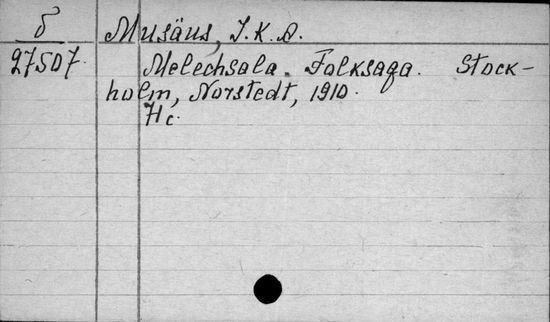 б Musäus, J.K.A.
27507. Melechsala. Folksaga. Stock-
holm, Norstedt, 1910.
Hc.